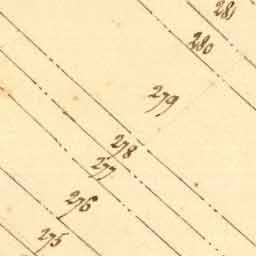 281
280
279
278
277
276
275